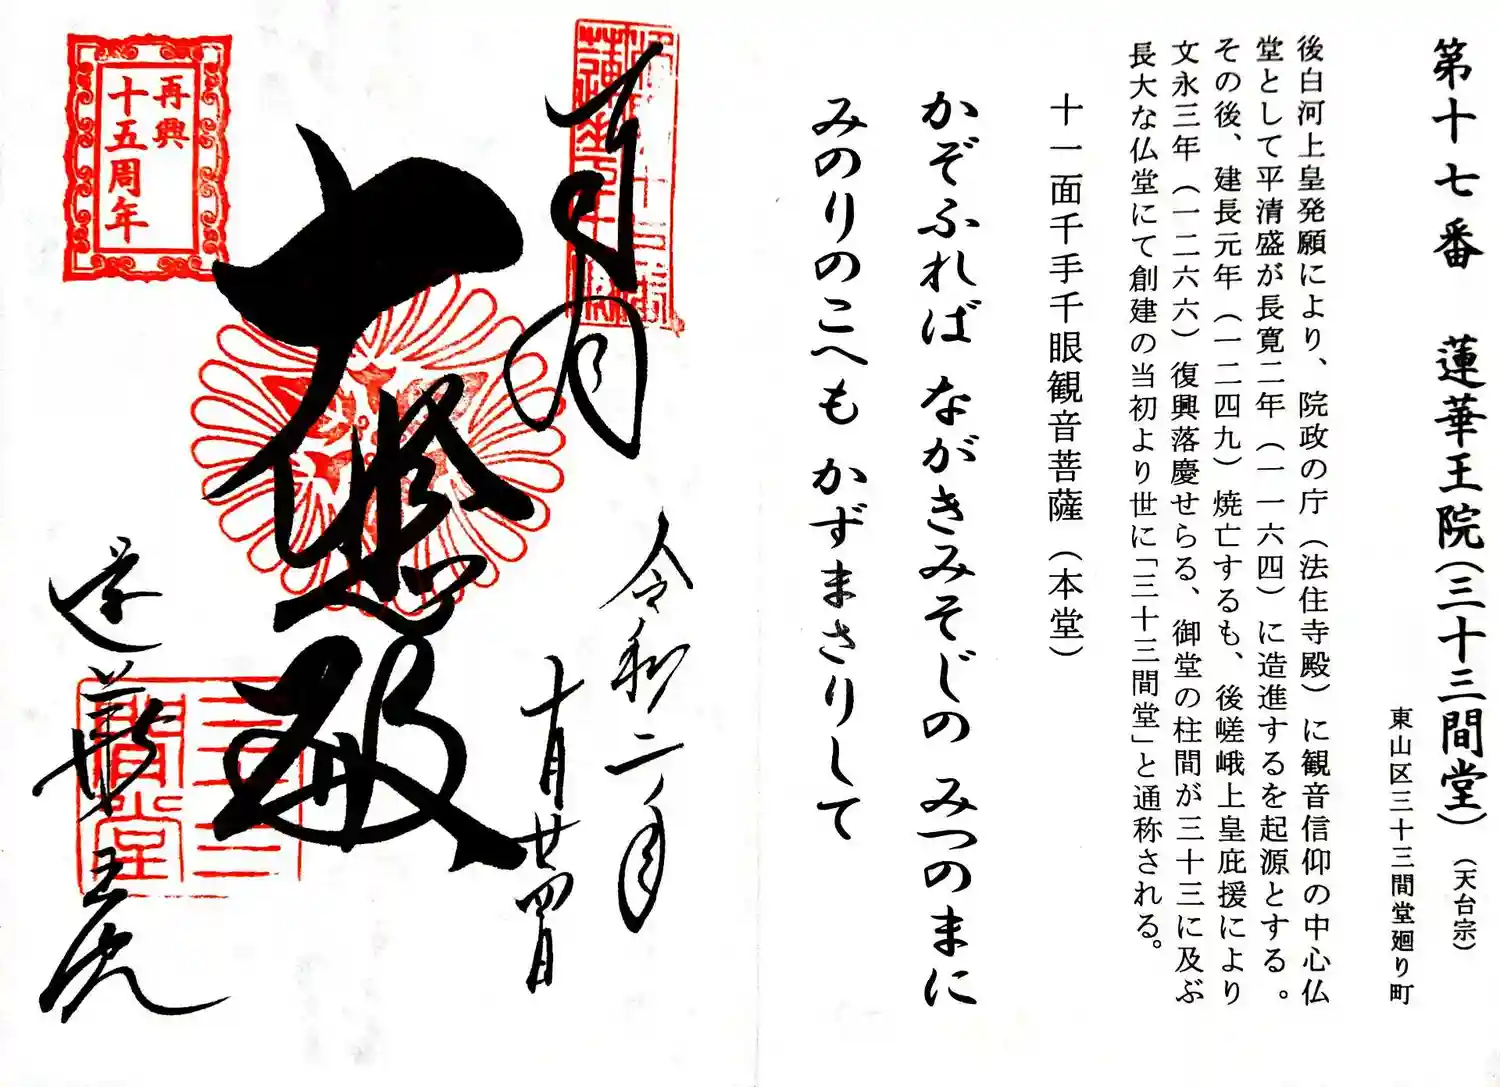 第十七番　蓮華王院（三十三間堂）（天台宗）
東山区三十三間堂廻り町
後白河上皇発願により、院政の庁（法住寺殿）に観音信仰の中心仏
堂として平清盛が長寛二年（一一六四）に造進するを起源とする。
その後、建長元年（一二四九）焼亡するも、後嵯峨上皇庇援により
文永三年（一二六六）復興落慶せらる、御堂の柱間が三十三に及ぶ
長大な仏堂にて創建の当初より世に「三十三間堂」と通称される。
十一面千手千眼観音菩薩（本堂）
かぞふれば ながきみそじの みつのまに
みのりのこへも かずまさりして
令和二年
十月廿四日
大悲殿
蓮華王院
再興
十五周年
三十三
間堂